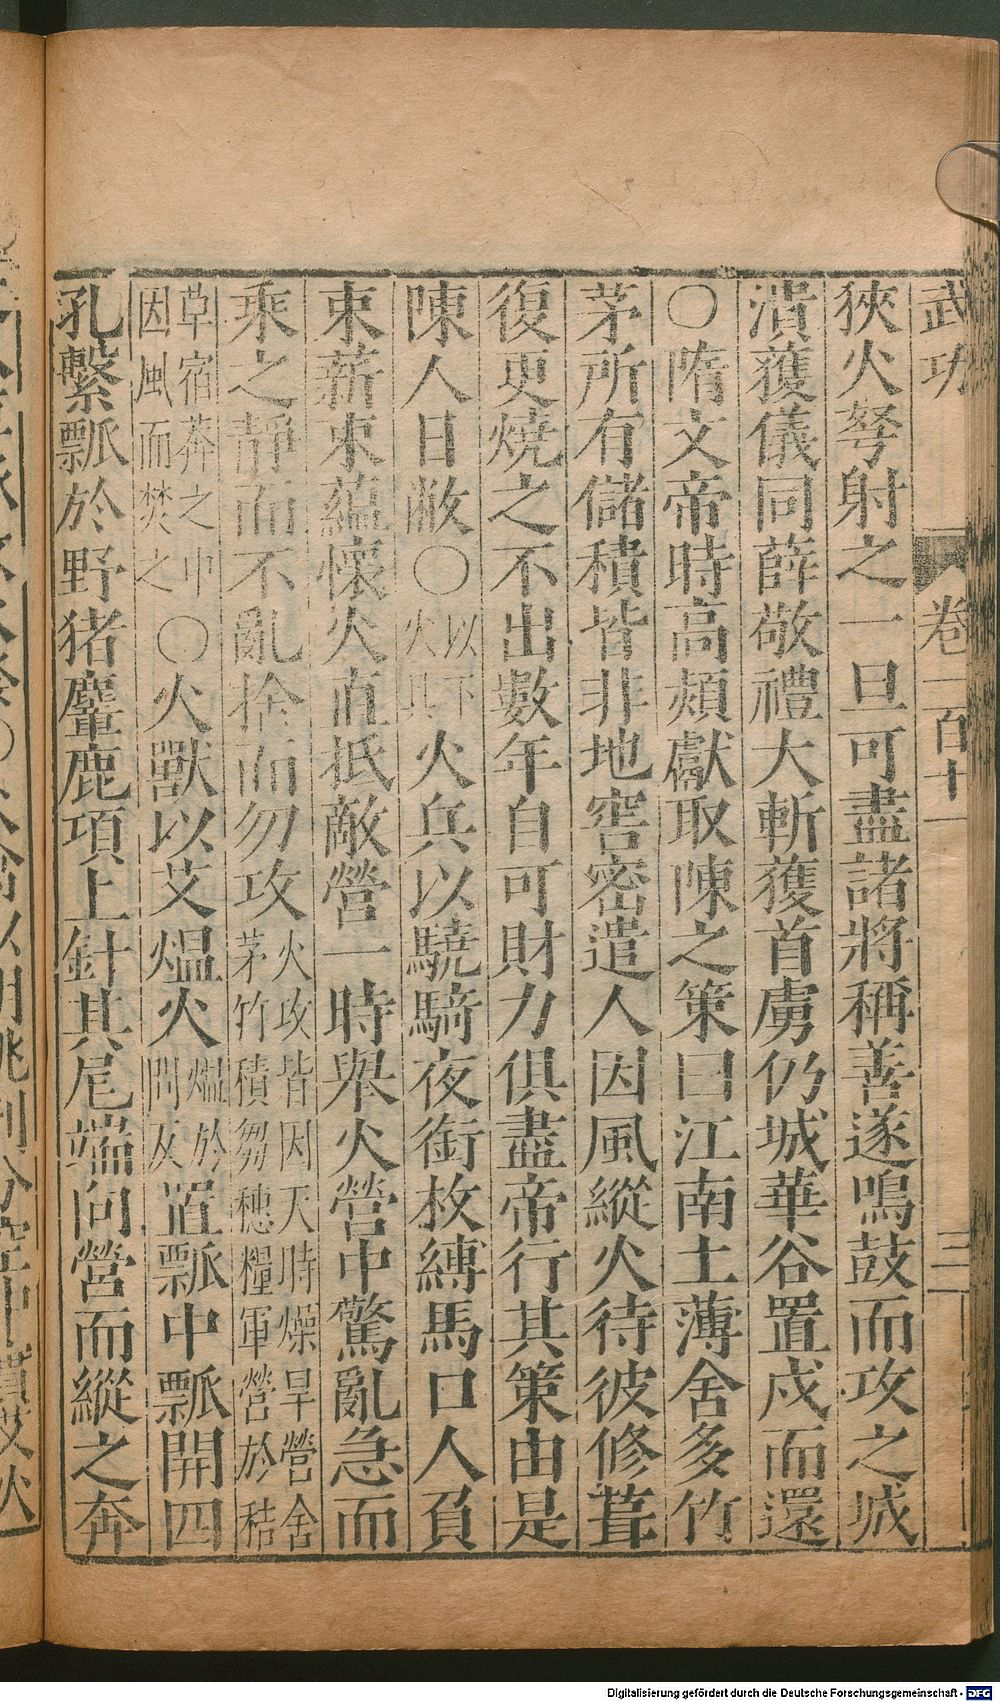 武功 卷一百十一 三
狹火弩射之一旦可盡諸將稱善遂鳴鼓而攻之城
潰獲儀同薛敬禮大斬獲首虜仍城華谷置戍而還
○隋文帝時高熲獻取陳之策曰江南土薄舍多竹
茅所有儲積皆非地窖密遣人因風縱火待彼修葺
復更燒之不出數年自可財力俱盡帝行其策由是
陳人日敝○以下火具 火兵以驍騎夜銜枚縛馬口人負
束薪束蘊懷火直抵敵營一時舉火營中驚亂急而
乘之靜而不亂捨而勿攻火攻皆因天時燥旱營舍茅竹積芻穗糧軍營於秸
草宿莽之中因風而焚之○火獸以艾熅火熅於問反置瓢中瓢開四
孔繫瓢於野猪麞鹿項上針其尾端向營而縱之奔
Digitalisierung gefördert durch die Deutsche Forschungsgemeinschaft - DFG